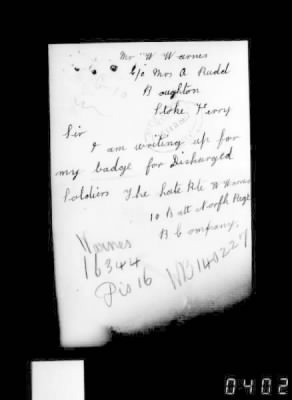 Mr W Warnes
C/o Mrs A Rudd
Boughton
Stoke Ferry
Sir
I am writing up for
my badge for Discharged
Soldiers The Late Pte W Warnes
10 Batt Norfk Regt
B Company.
Warnes
16344
Pis 16
WB140227
0402